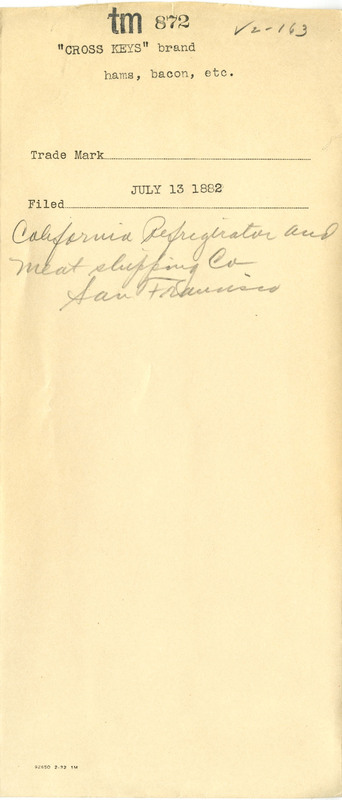 tm 872
V2-163
"CROSS KEYS" brand
hams, bacon, etc.
Trade Mark
JULY 13 1882
Filed
California Refrigirator and
Meat shipping Co
San Francisco